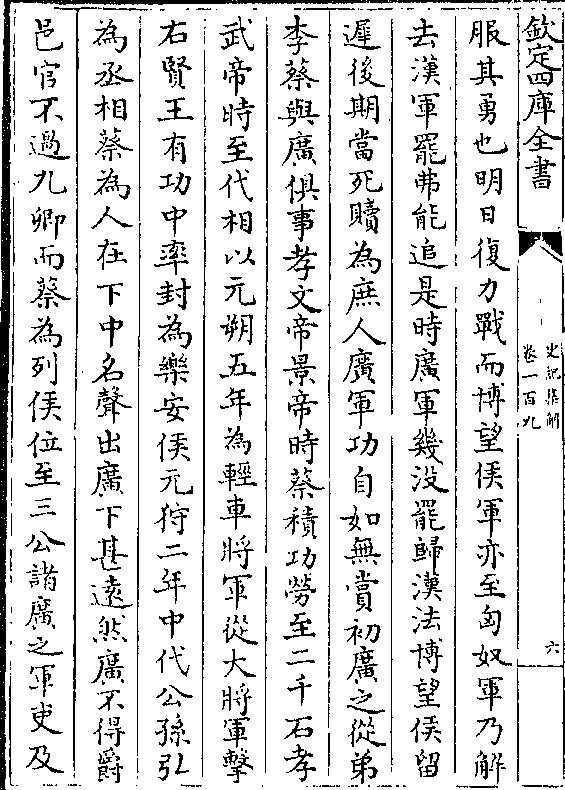 欽定四庫全書
史記集解
卷一百九
六
服其勇也明日復力戰而博望侯軍亦至匈奴軍乃解
去漢軍罷弗能追是時廣軍幾没罷歸漢法博望侯留
遲後期當死贖為庶人廣軍功自如無賞初廣之從弟
李蔡與廣俱事孝文帝景帝時蔡積功勞至二千石孝
武帝時至代相以元朔五年為輕車將軍從大將軍擊
右賢王有功中率封為樂安侯元狩二年中代公孫弘
為丞相蔡為人在下中名聲出廣下甚遠然廣不得爵
邑官不過九卿而蔡為列侯位至三公諸廣之軍吏及